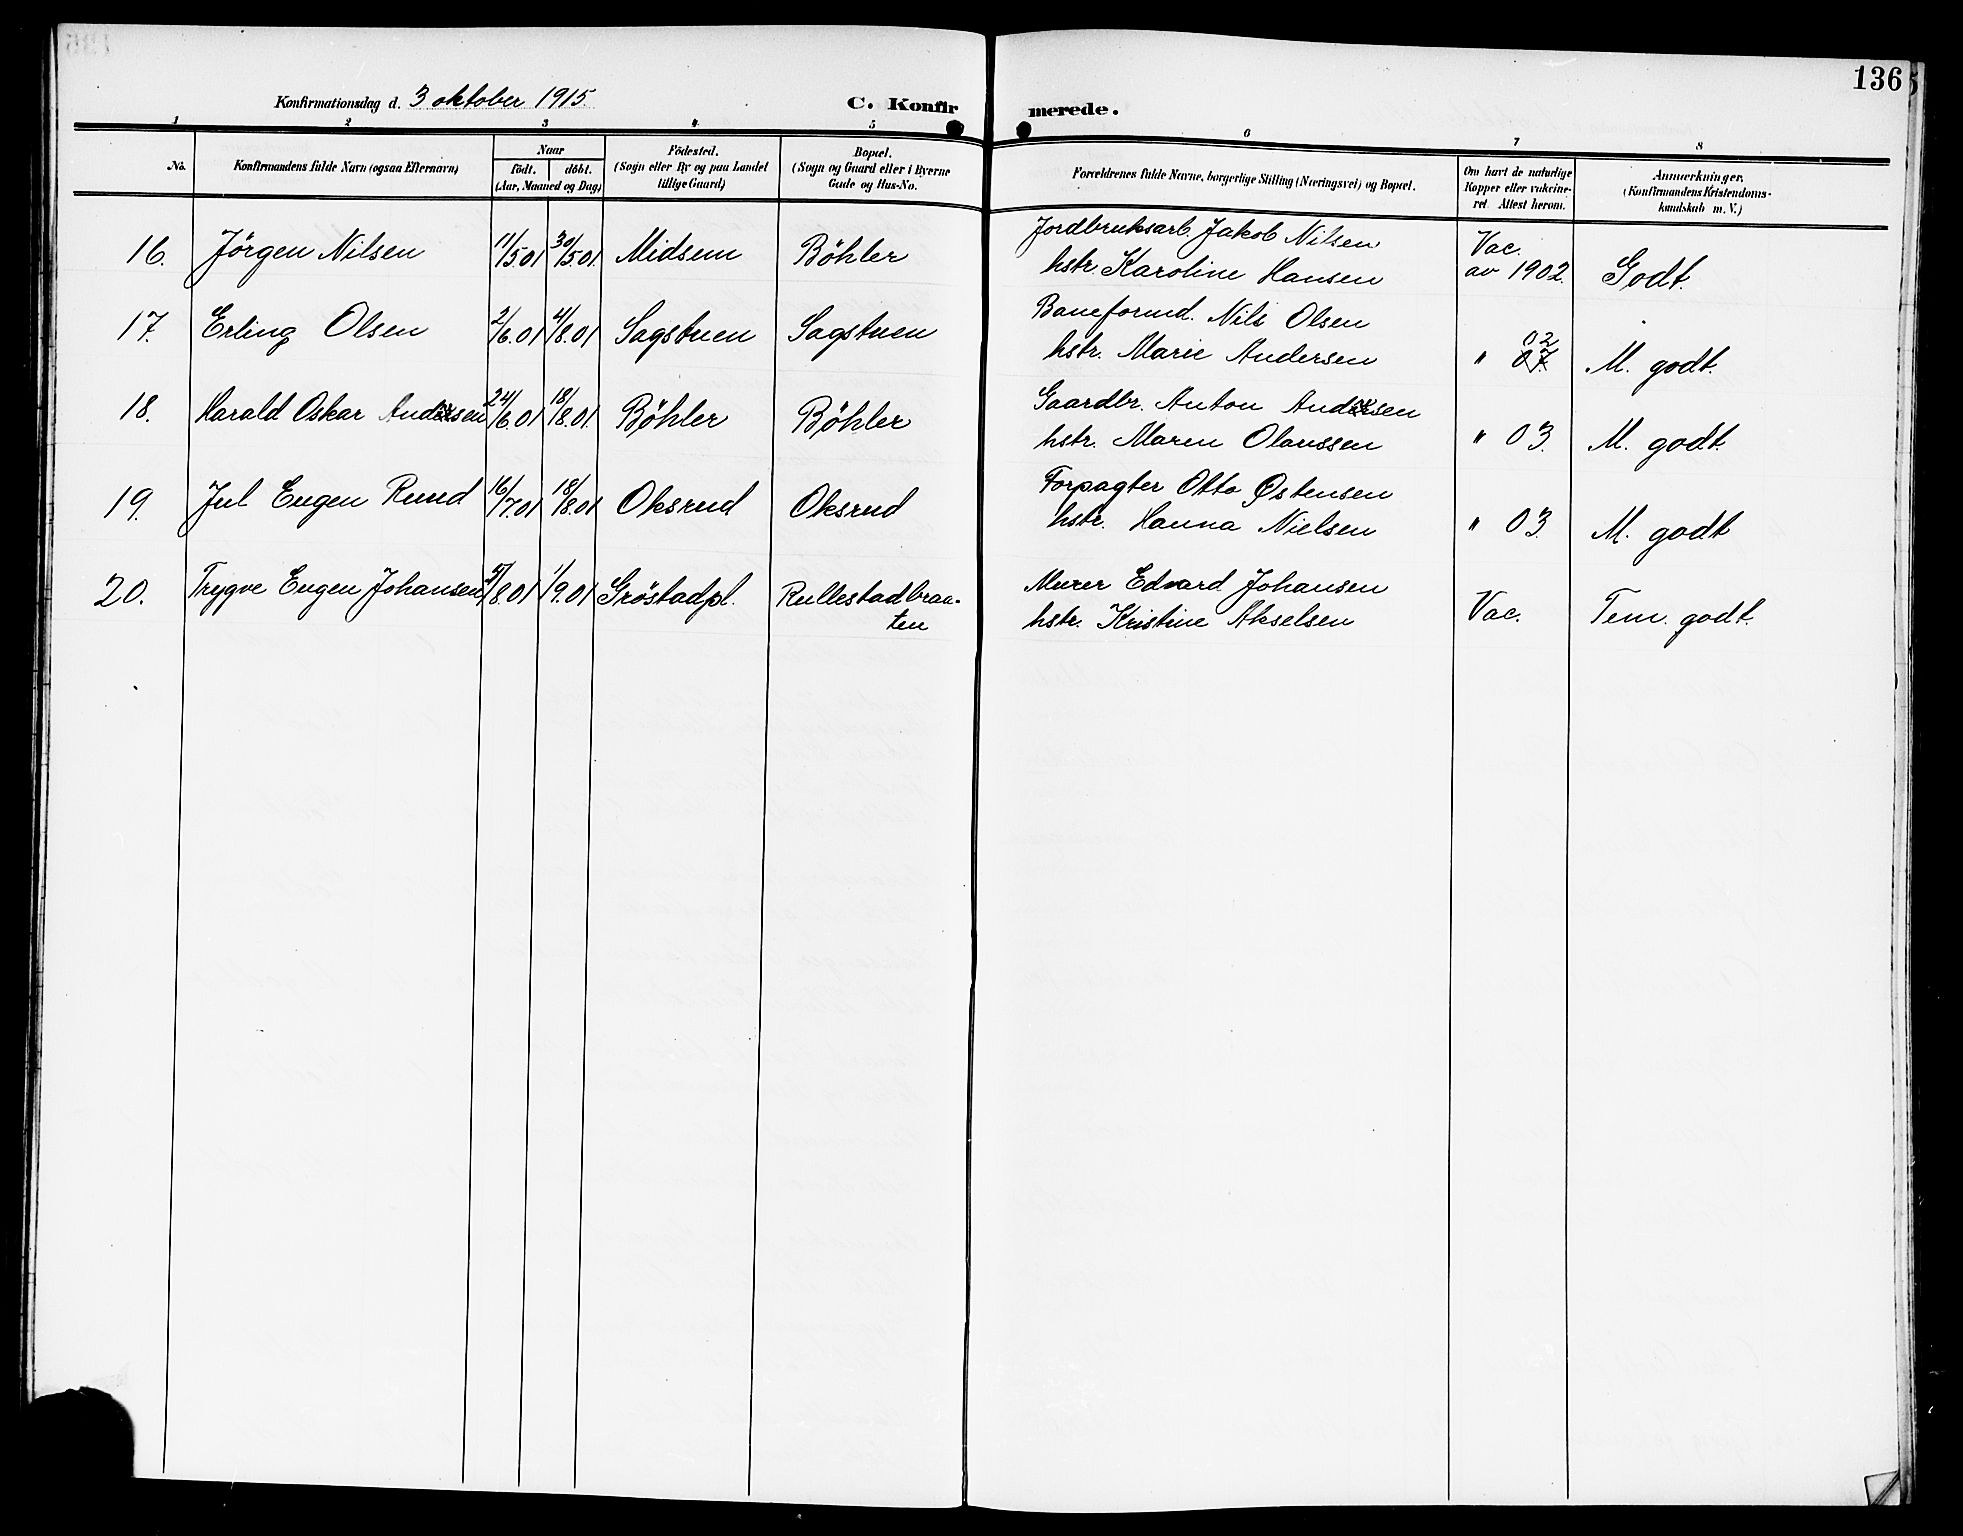 136
Konfirmationsdag d. 3 oktober 1915.
C. Konfir merede.
1 2 3 4 5 6 7 8
No.
Konfirmandens fulde Navn (ogsaa Efternavn)
Naar
födt. döbt.
(Aar, Maaned og Dag)
Födested.
(Sogn eller By og paa Landet
tillige Gaard)
Bopæl.
(Sogn og Gaard eller i Byerne
Gade og Hus-No.
Forældrenes fulde Navne, borgerlige Stilling (Næringsvei) og Bopæl.
Om havt de naturlige
Kopper eller vakcine-
ret Attest herom.
Anmærkninger,
(Konfirmandens Kristendoms-
kundskab m. V.)
16. Jörgen Nilsen 11/5.01 30/5.01. Midsem Böhler Jordbruksarb. Jakob Nilsen Vac.
hstr. Karoline Hansen av 1902. Godt.
17. Erling Olsen 2/6.01 4/8.01 Sagstuen Sagstuen Baneformd. Nils Olsen 02
hstr. Marie Andersen " 07. M. godt.
18. Harald Oskar Andersen 24/6.01 18/8.01. Böhler Böhler Gaardbr. Anton Andersen
hstr. Maren Olaussen " 03. M. godt.
19. Jul Eugen Ruud 16/7.01 18/8.01 Oksrud Oksrud Forpagter Otto Østensen
hstr. Hanna Nielsen " 03. M. godt
20. Trygve Eugen Johansen /8.01 1/9.01 Gröstadpl. Rullestadbraa- Murer Edvard Johansen
ten hstr. Kristine Akselsen Vac. Tem. godt.